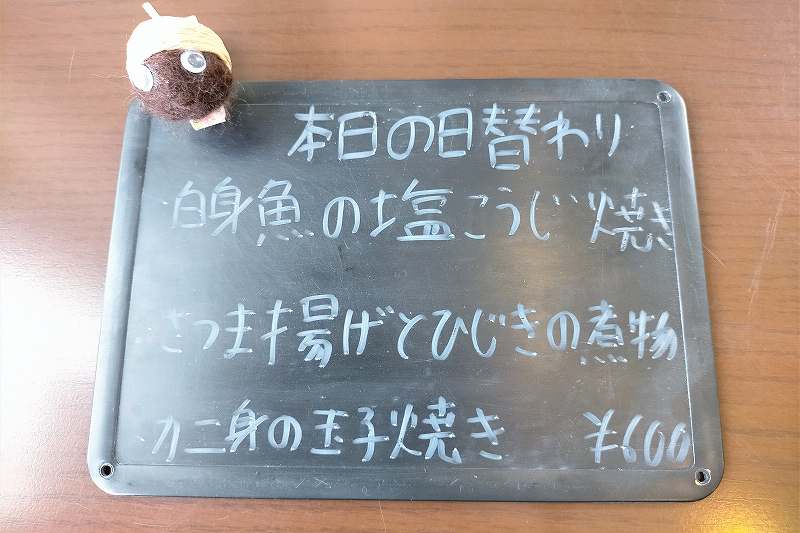 本日の日替わり
白身魚の塩こうじ焼き
さつま揚げとひじきの煮物
カニ身の玉子焼き ¥600